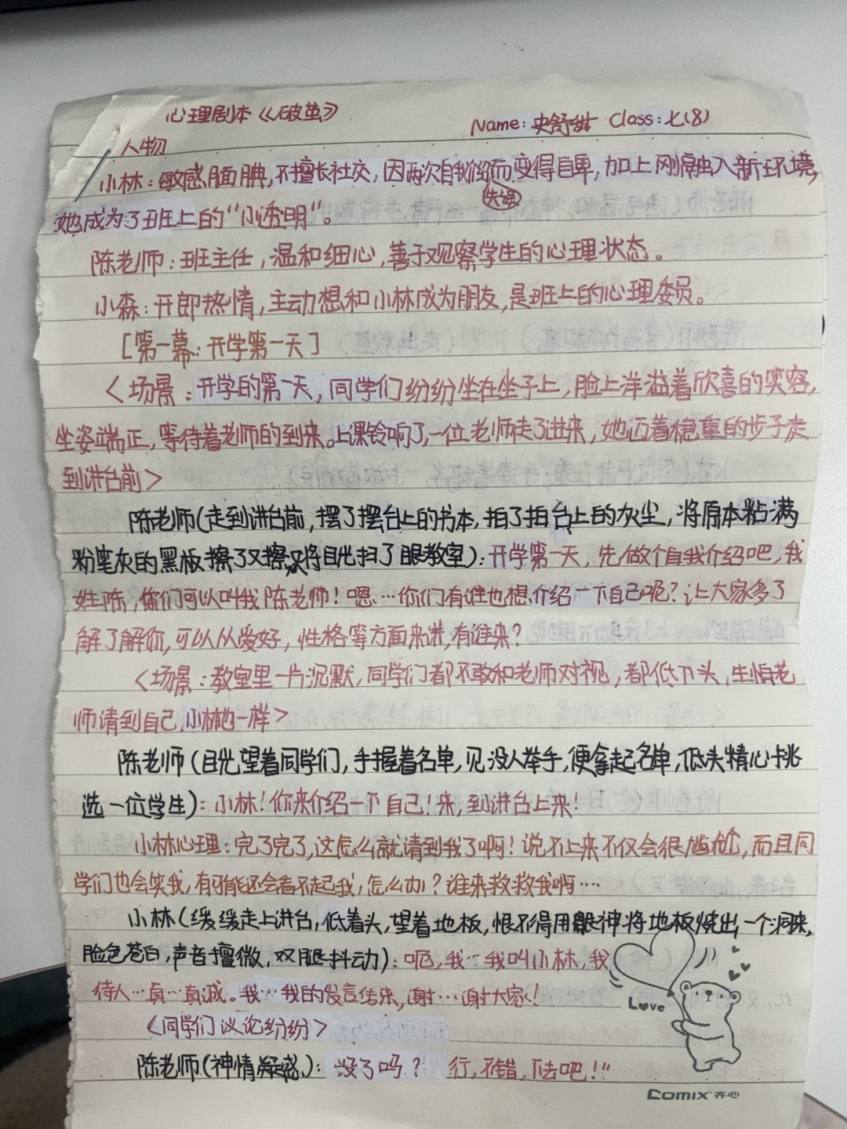 心理剧本《破茧》
Name: 史舒甜 Class: 七(8)
人物
小林：敏感腼腆，不擅长社交，因两次自我介绍失误而变得自卑，加上刚融入新环境，
她成为了班上的“小透明”。
陈老师：班主任，温和细心，善于观察学生的心理状态。
小森：开朗热情，主动想和小林成为朋友，是班上的心理委员。
[第一幕：开学第一天]
<场景：开学的第一天，同学们纷纷坐在坐子上，脸上洋溢着欣喜的笑容，
坐姿端正，等待着老师的到来。上课铃响了，一位老师走了进来，她迈着稳重的步子走
到讲台前>
陈老师(走到讲台前，摆了摆台上的书本，拍了拍台上的灰尘，将原本粘满
粉笔灰的黑板擦了又擦，又将目光扫了眼教室)：开学第一天，先做个自我介绍吧，我
姓陈，你们可以叫我陈老师！嗯…你们有谁也想介绍一下自己呢？让大家多了
解了解你，可以从爱好，性格等方面来说，有谁来？
<场景：教室里一片沉默，同学们都不敢和老师对视，都低下头，生怕老
师请到自己，小林也一样>
陈老师(目光望着同学们，手握着名单，见没人举手，便拿起名单，低头精心挑
选一位学生)：小林！你来介绍一下自己！来，到讲台上来！
小林心理：完了完了，这怎么就请到我了啊！说不上来不仅会很尴尬，而且同
学们也会笑我，有可能还会看不起我，怎么办？谁来救救我啊…
小林(缓缓走上讲台，低着头，望着地板，恨不得用眼神将地板烧出一个洞来，
脸色苍白，声音擅微，双腿抖动)：呃，我…我叫小林，我
待人…真…真诚。我…我的发言结束，谢…谢大家！
<同学们议论纷纷>
陈老师(神情疑惑)：没了吗？ 行，不错，下去吧！”
Love
Comix 齐心